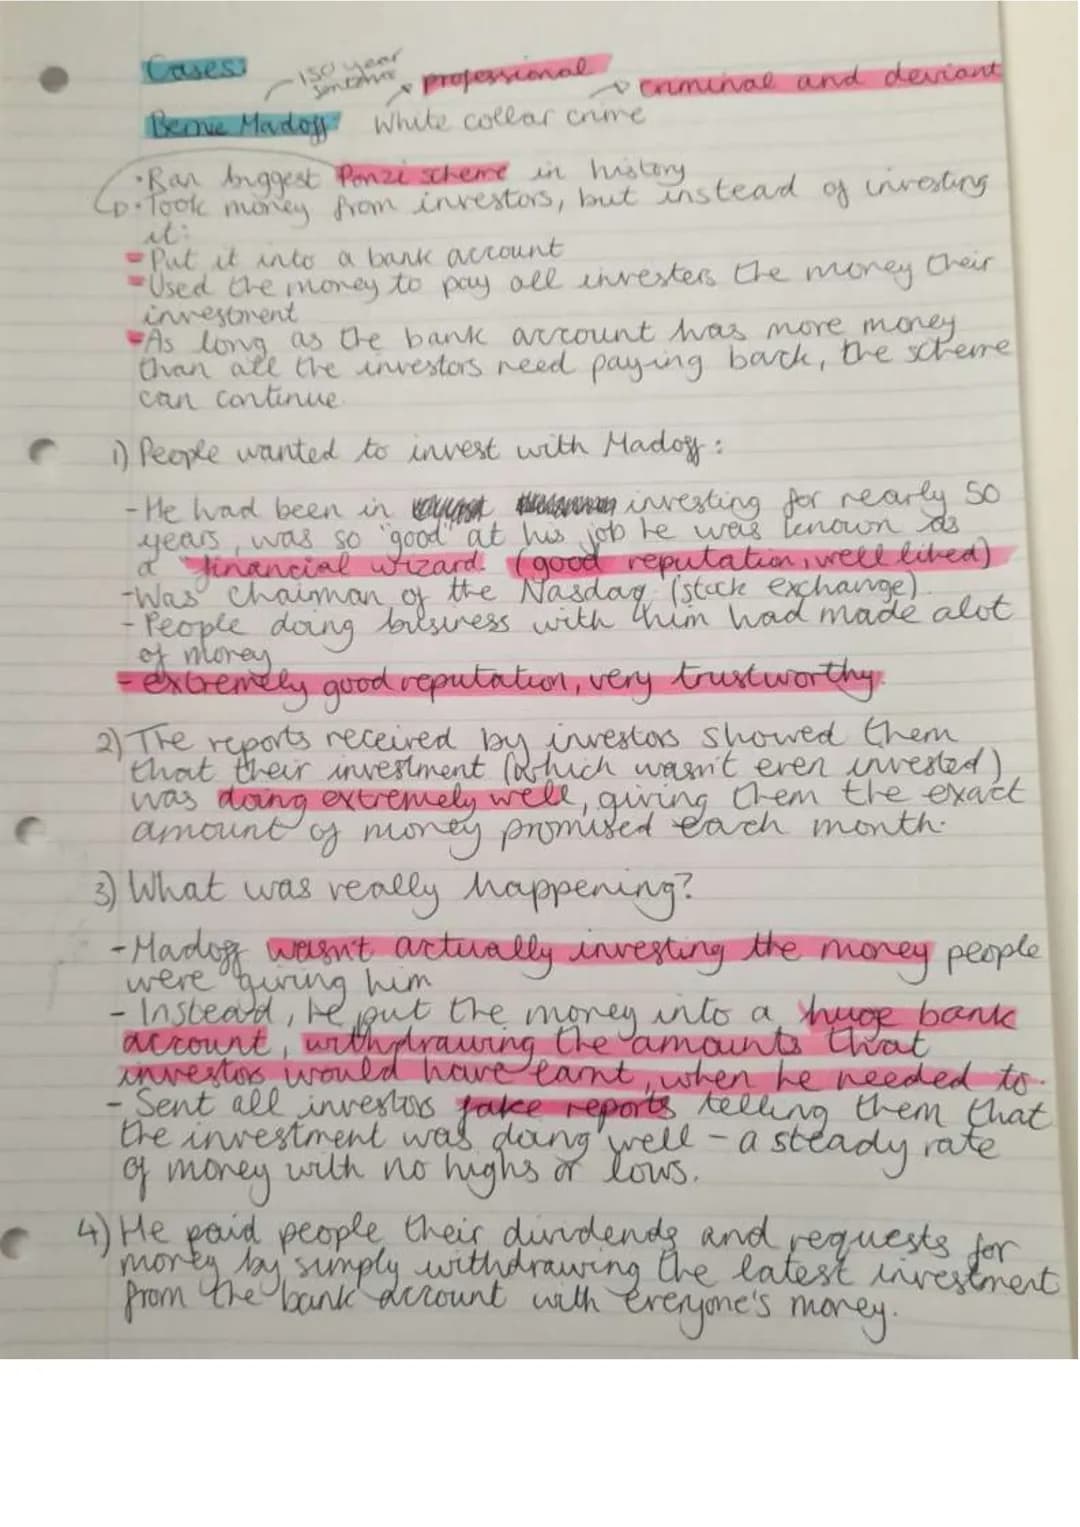 Cases:
150 year
sentence
professional
criminal and deviant
Bernie Madoff: White collar crime
• Ran biggest Ponzi scheme in history
• Took money from investors, but instead of investing
it:
- Put it into a bank account
- Used the money to pay all investers the money their
investment
- As long as the bank account has more money
than all the investors need paying back, the scheme
can continue.
1) People wanted to invest with Madoff:
- He had been in investing for nearly 50
years, was so "good" at his job he was known as
a "financial wizard. (good reputation, well liked)
- Was chairman of the Nasdaq (stock exchange).
- People doing business with him had made alot
of money
- extremely good reputation, very trustworthy.
2) The reports received by investors showed them
that their investment (which wasn't even invested)
was doing extremely well, giving them the exact
amount of money promised each month.
3) What was really happening?
- Madoff wasn't actually investing the money people
were giving him
- Instead, he put the money into a huge bank
account, withdrawing the amounts that
investors would have earnt, when he needed to.
- Sent all investors fake reports telling them that
the investment was doing well - a steady rate
of money with no highs or lows.
4) He paid people their dividends and requests for
money by simply withdrawing the latest investment
from the bank account with everyone's money.